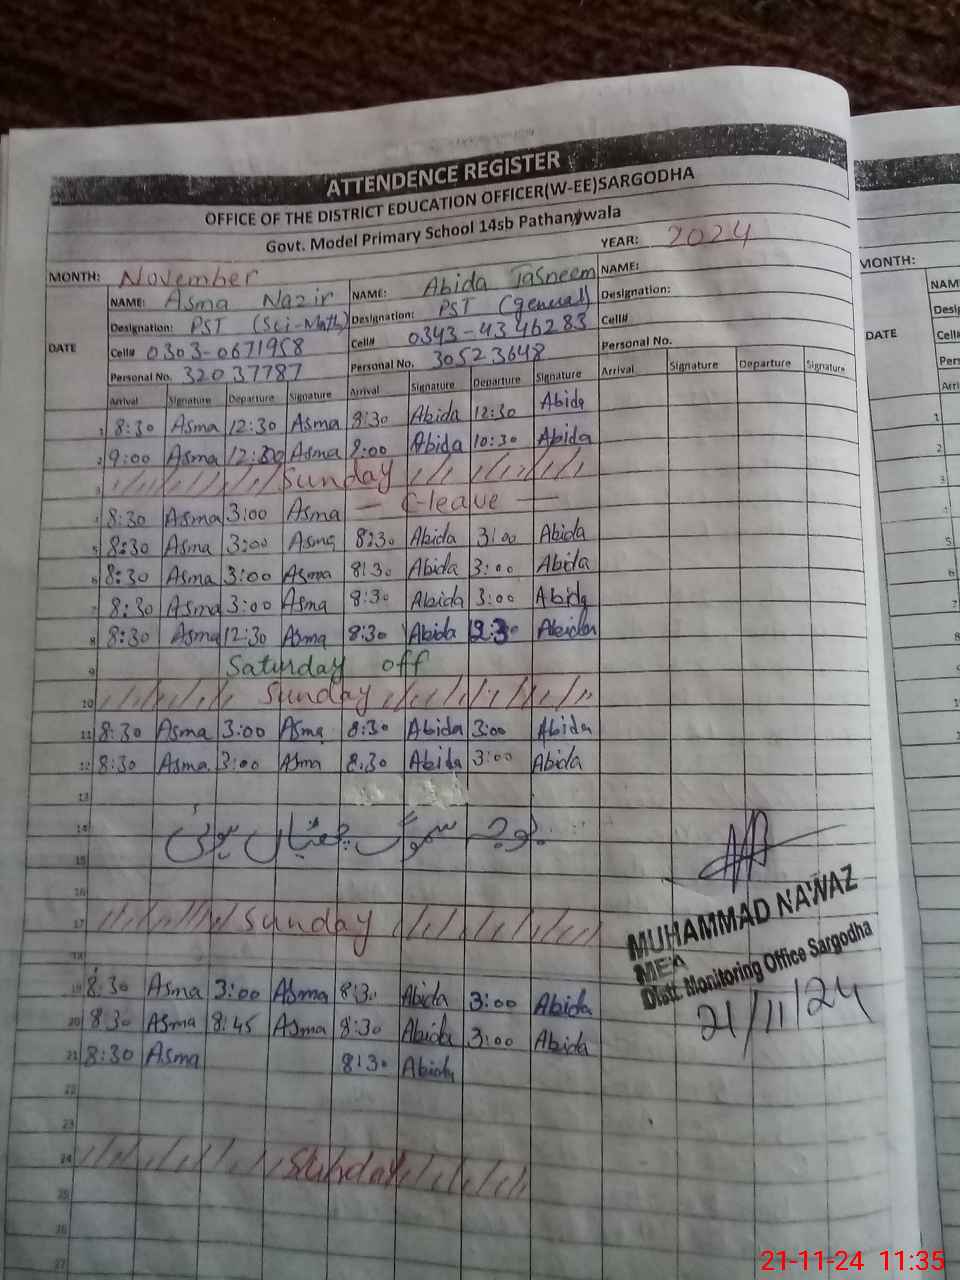 ATTENDENCE REGISTER
OFFICE OF THE DISTRICT EDUCATION OFFICER(W-EE)SARGODHA
Govt. Model Primary School 14sb Pathanywala
MONTH: November YEAR: 2024
NAME: Asma Nazir NAME: Abida Tasneem NAME:
Designation: PST (Sci-Math) Designation: PST (general) Designation:
DATE Cell# 0303-0671958 Cell# 0343-4346283 Cell#
Personal No. 32037787 Personal No. 30523648 Personal No.
Arrival Signature Departure Signature Arrival Signature Departure Signature Arrival Signature Departure Signature
1 8:30 Asma 12:30 Asma 8:30 Abida 12:30 Abida
2 9:00 Asma 12:30 Asma 9:00 Abida 10:30 Abida
3 Sunday
4 8:30 Asma 3:00 Asma — C-leave —
5 8:30 Asma 3:00 Asma 8:30 Abida 3:00 Abida
6 8:30 Asma 3:00 Asma 8:30 Abida 3:00 Abida
7 8:30 Asma 3:00 Asma 8:30 Abida 3:00 Abida
8 8:30 Asma 12:30 Asma 8:30 Abida 12:30 Abida
9 Saturday off
10 Sunday
11 8:30 Asma 3:00 Asma 8:30 Abida 3:00 Abida
12 8:30 Asma 3:00 Asma 8:30 Abida 3:00 Abida
13
14 بوجہ سموگ چھٹیاں ہوئی
15
16
17 Sunday
18
19 8:30 Asma 3:00 Asma 8:30 Abida 3:00 Abida
20 8:30 Asma 8:45 Asma 8:30 Abida 3:00 Abida
21 8:30 Asma 8:30 Abida
22
23
24 Sunday
25
26
27
MUHAMMAD NAWAZ
MEA
Distt. Monitoring Office Sargodha
21/11/24
MONTH:
DATE
1
2
3
4
5
6
7
8
9
10
11
12
21-11-24 11:35